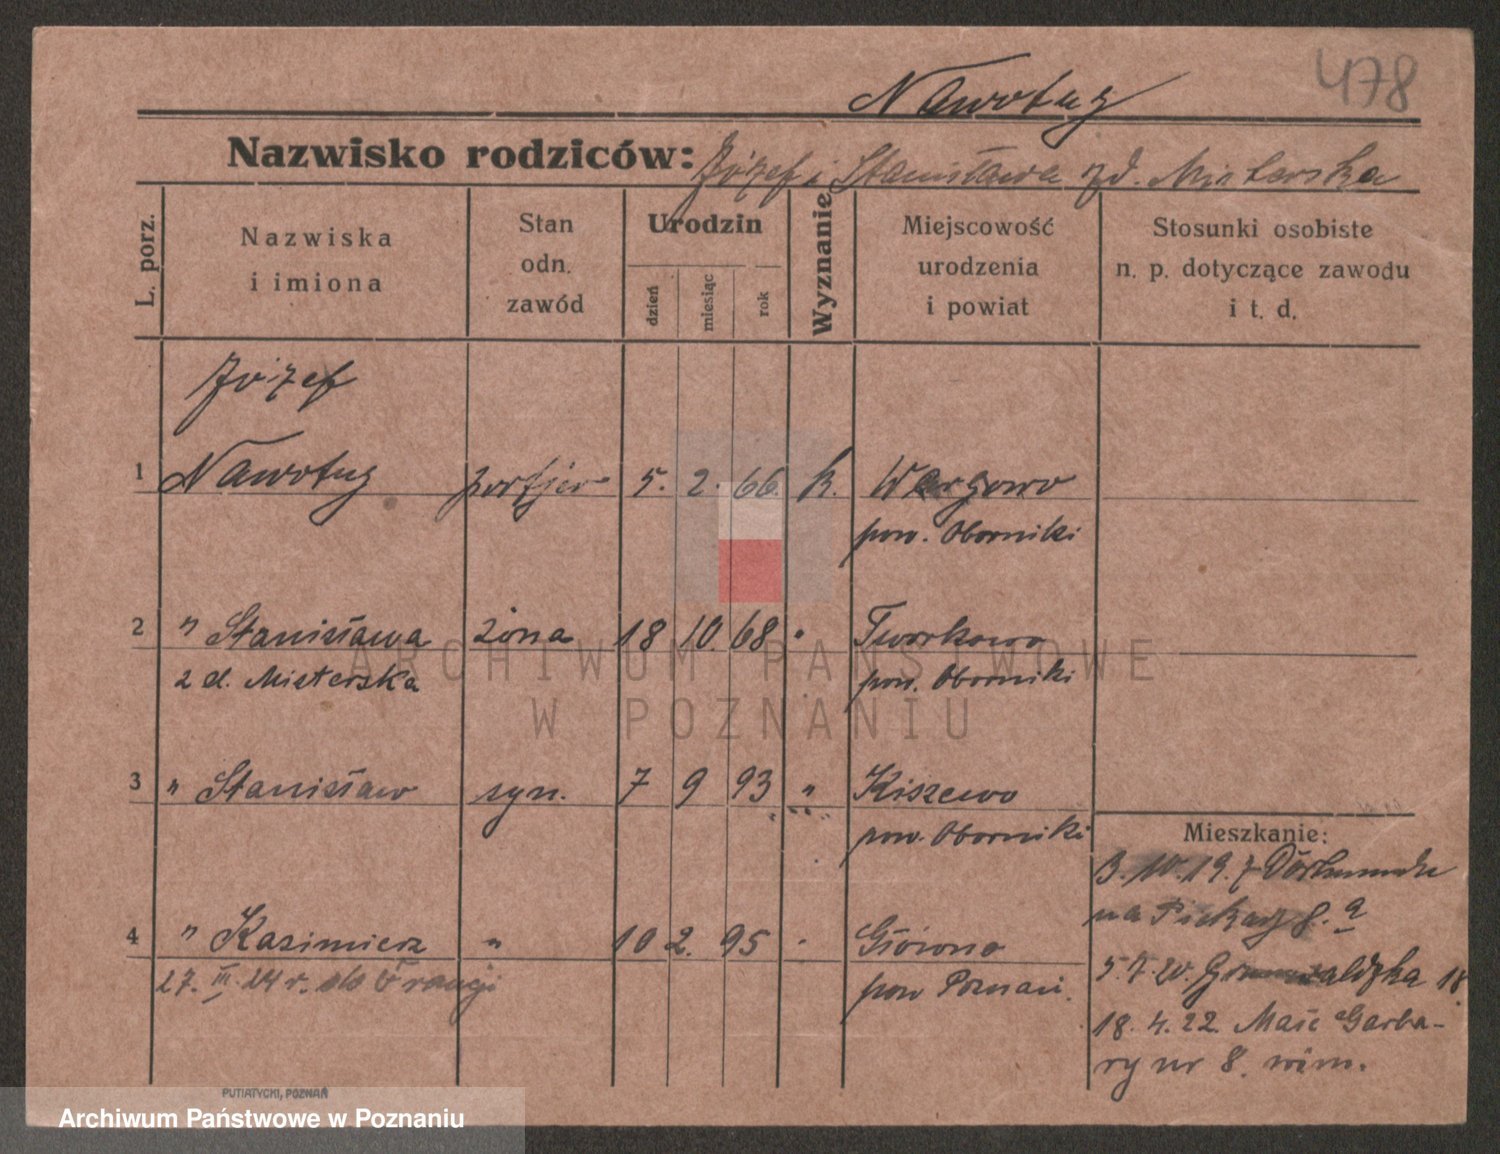 478
Nawotny
Nazwisko rodziców: Józef i Stanisława zd. Misterska
L. porz.
Nazwiska
i imiona
Stan
odn.
zawód
Urodzin
dzień
miesiąc
rok
Wyznanie
Miejscowość
urodzenia
i powiat
Stosunki osobiste
n. p. dotyczące zawodu
i t. d.
Józef
1 Nawotny portjer 5. 2. 66. k. Wargowo
pow. Oborniki
2 " Stanisława żona 18 10. 68 " Tworkowo
z d. Misterska pow. Oborniki
3 " Stanisław syn. 7 9 93 " Kiszewo
pow. Oborniki
4 " Kazimierz " 10 2. 95 "
27. III. 24 r. do Francji pow Poznań.
Mieszkanie:
3. 10. 19. z Dortmundu
na Piekary 8. a
5. 7. 20. Grunwaldzka 18
18. 4. 22. Małe Garba-
ry nr 8.
PUTIATYCKI, POZNAŃ
ARCHIWUM PAŃSTWOWE
W POZNANIU
Archiwum Państwowe w Poznaniu